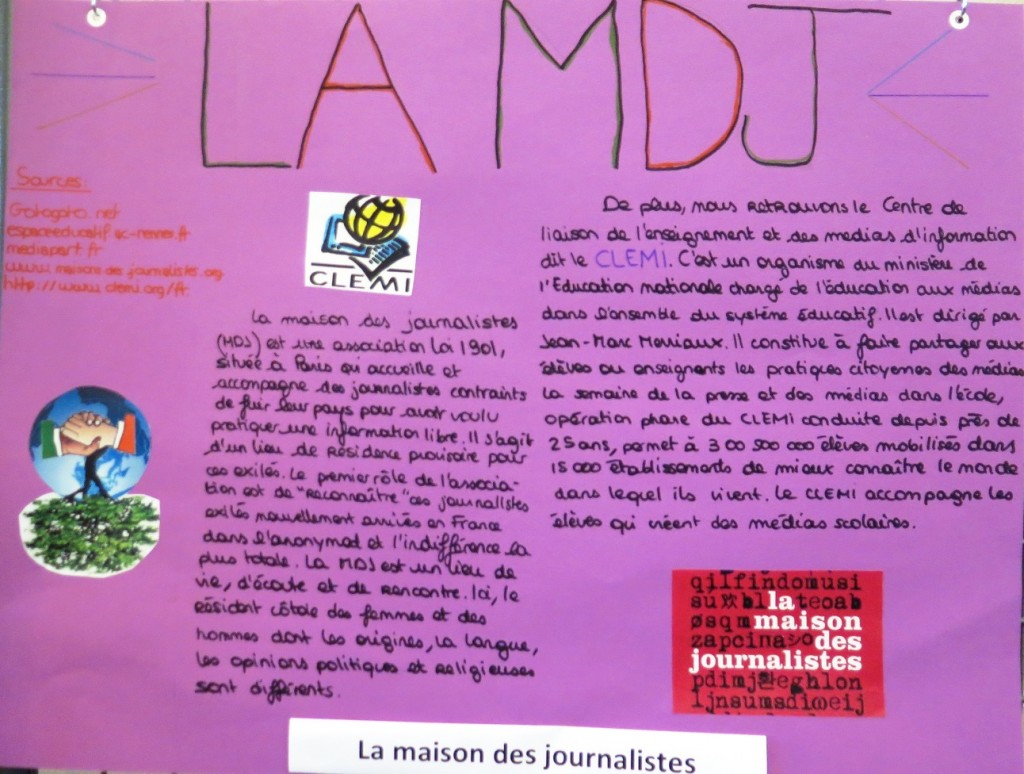 LA MDJ
Sources:
Gotogoto.net
espaceeducatif.ac-rennes.fr
mediapart.fr
www.maisons des journalistes.org
http://www.clemi.org/fr.
CLEMI
La maison des journalistes
(MDJ) est une association Loi 1901,
située à Paris qui accueille et
accompagne des journalistes contraints
de fuir leur pays pour avoir voulu
pratiquer une information libre. Il s'agit
d'un lieu de résidence provisoire pour
ces exilés. Le premier rôle de l'associa-
tion est de "reconnaître" ces journalistes
exilés nouvellement arrivés en France
dans l'anonymat et l'indifférence la
plus totale. La MDJ est un lieu de
vie, d'écoute et de rencontre. Ici, le
résident côtoie des femmes et des
hommes dont les origines, la langue,
les opinions politiques et religieuses
sont différents.
De plus, nous retrouvons le Centre de
liaison de l'enseignement et des medias d'information
dit le CLEMI. C'est un organisme du ministère de
l'Education nationale chargé de l'éducation aux médias
dans l'ensemble du système éducatif. Il est dirigé par
Jean-Marc Merriaux. Il constitue à faire partager aux
élèves ou enseignants les pratiques citoyennes des médias
la semaine de la presse et des médias dans l'école,
opération phare du CLEMI conduite depuis près de
25 ans, permet à 300 500 000 élèves mobilisés dans
15 000 établissements de mieux connaître le monde
dans lequel ils vivent. Le CLEMI accompagne les
élèves qui créent des médias scolaires.
qijlfindomusi
su bl la teoab
øsqm maison
zapcina des
journalistes
pdimj eghlon
ljnsumsdiweij
La maison des journalistes